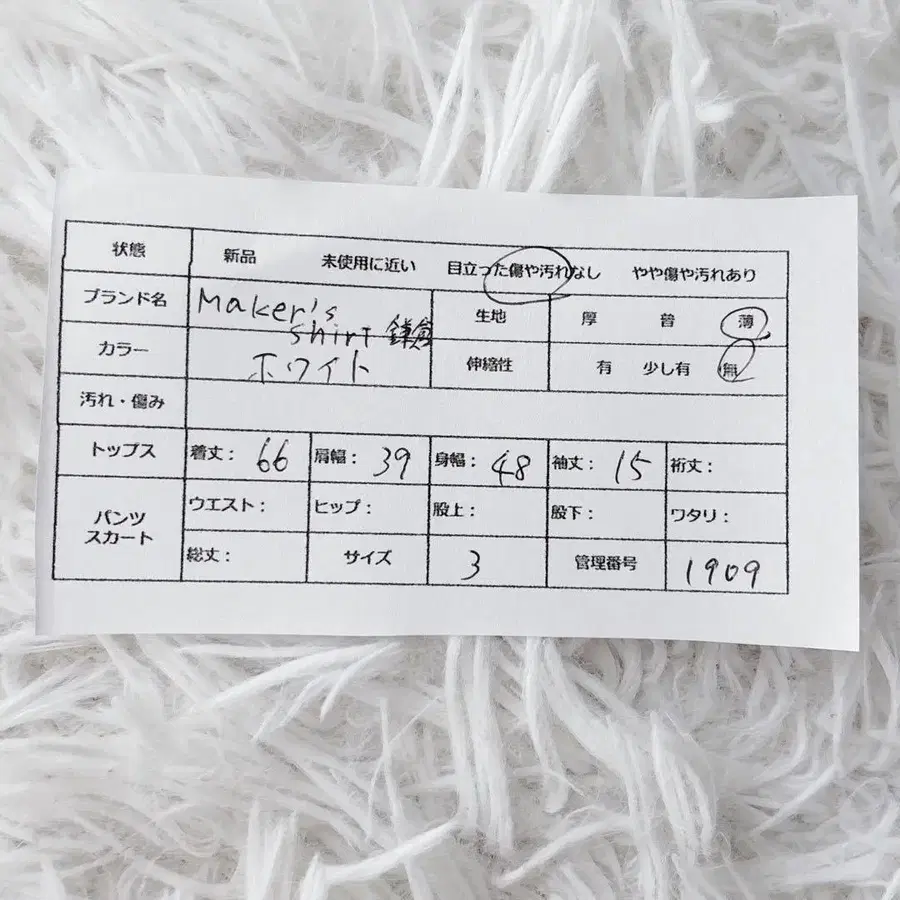 状態 新品 未使用に近い 目立った傷や汚れなし やや傷や汚れあり
ブランド名 Maker's shirt 鎌倉 生地 厚 普 薄
カラー ホワイト 伸縮性 有 少し有 無
汚れ・傷み
トップス 着丈: 66 肩幅: 39 身幅: 48 袖丈: 15 裄丈:
パンツ スカート ウエスト: ヒップ: 股上: 股下: ワタリ:
総丈: サイズ 3 管理番号 1909